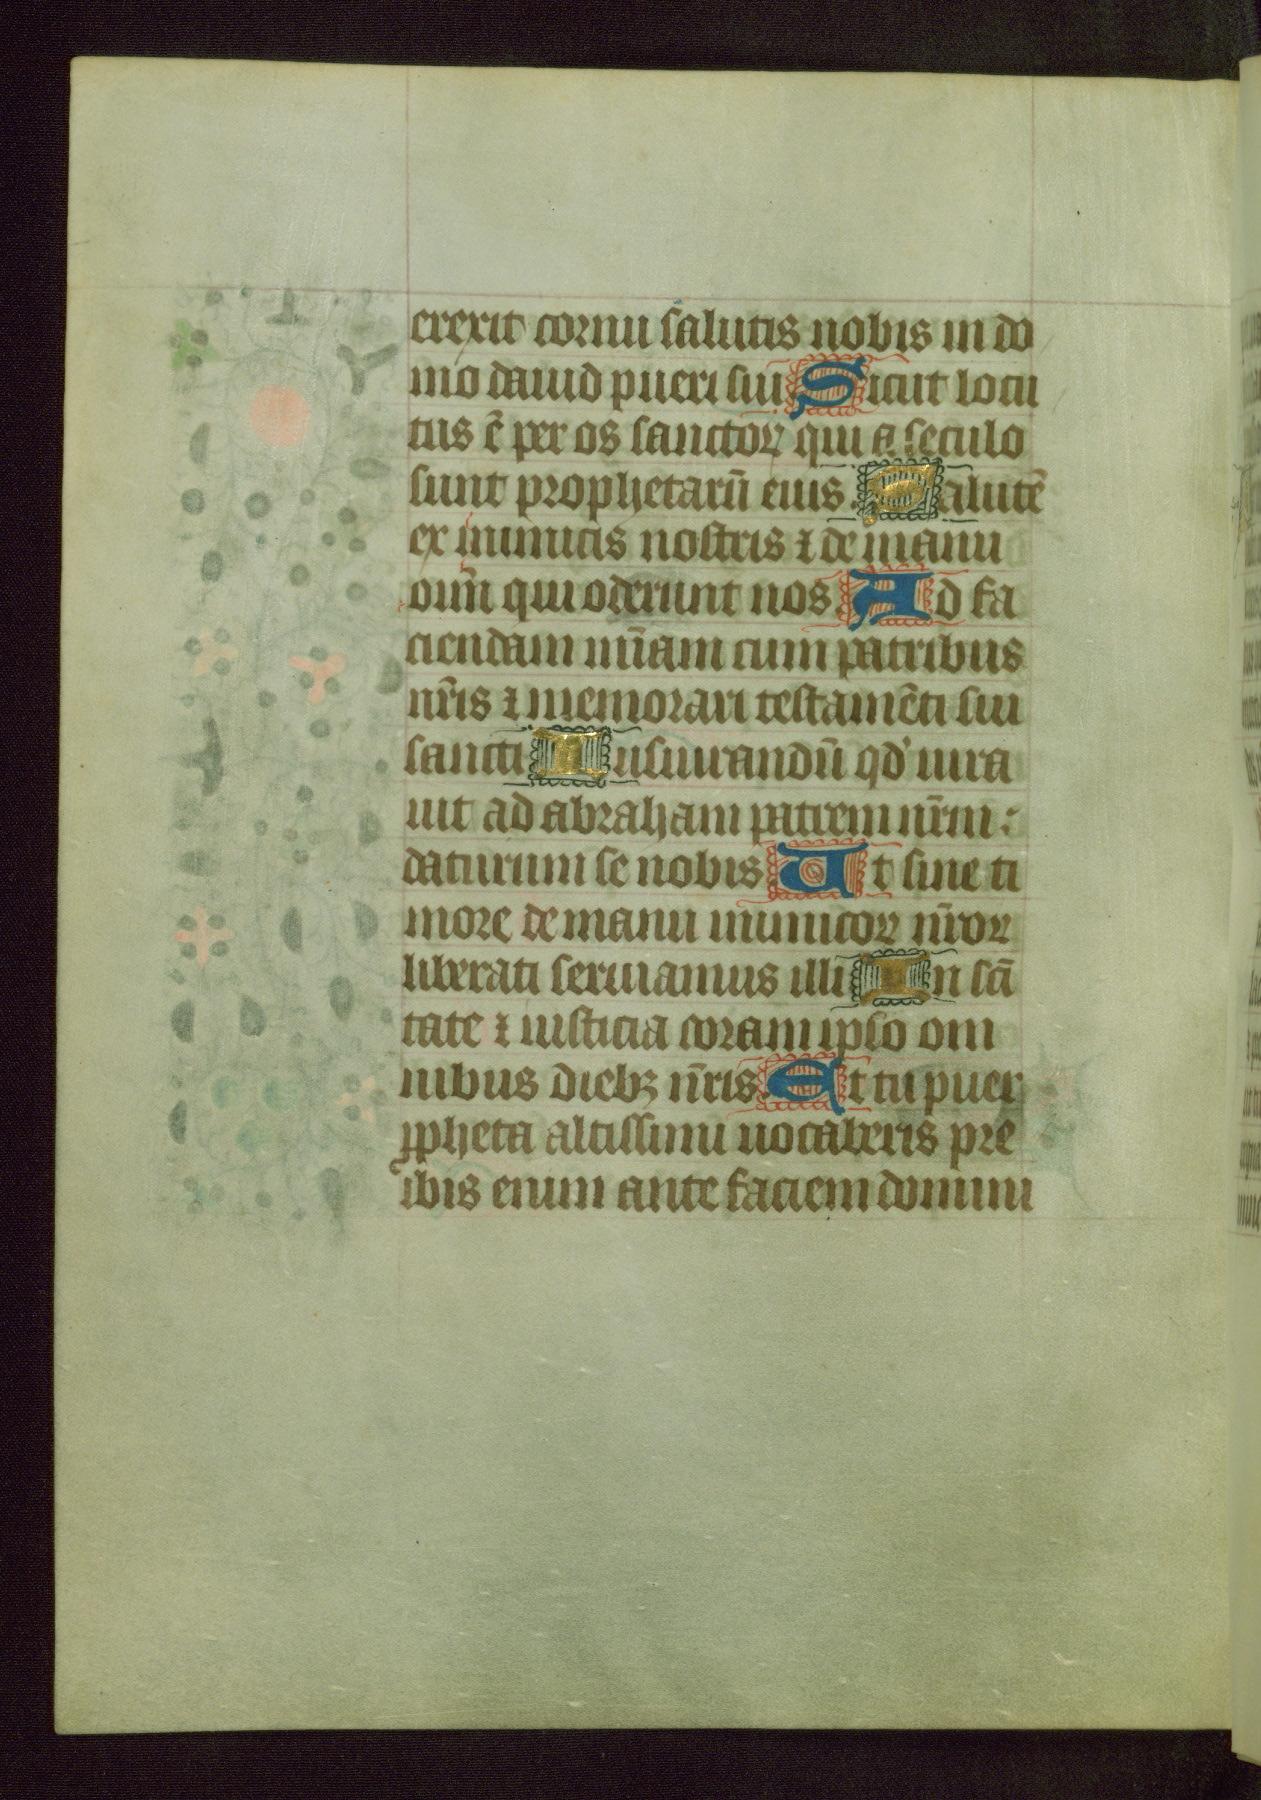 erexit cornu salutis nobis in do
mo dauid pueri sui Sicut locu
tus ē per os sanctoꝝ qui a seculo
sunt prophetarū eius. Salutē
ex inimicis nostris ⁊ de manu
oīm qui oderunt nos. Ad fa
ciendam mīam cum patribus
nr̄is ⁊ memorari testamēti sui
sancti Iusiurandū qd' iura
uit ad abraham patrem nr̄m :
daturum se nobis Ut sine ti
more de manu inimicoꝝ nr̄oꝝ
liberati seruiamus illi In scī
tate ⁊ iusticia coram ipso om
nibus diebꝫ nr̄is. Et tu puer
ꝓpheta altissimi uocaberis pre
ibis enim ante faciem domini